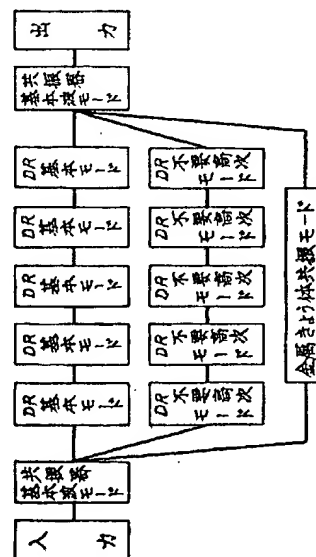 入
力
共振器
基本波モード
DR
基本モード
DR
基本モード
DR
基本モード
DR
基本モード
DR
基本モード
共振器
基本波モード
出
力
DR
不要高次
モード
DR
不要高次
モード
DR
不要高次
モード
DR
不要高次
モード
DR
不要高次
モード
金属きょう体共振モード